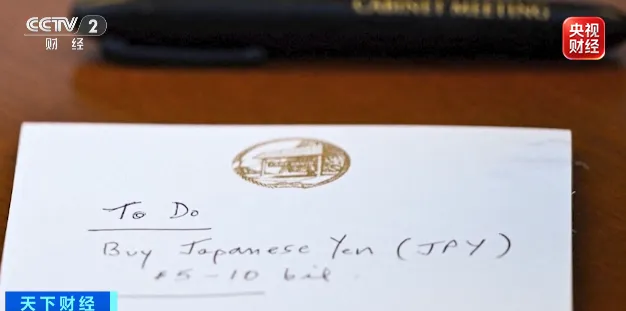 CCTV 2
财经
CABINET MEETING
央视
财经
To Do
Buy Japanese Yen (JPY)
$5-10 bil
天下财经